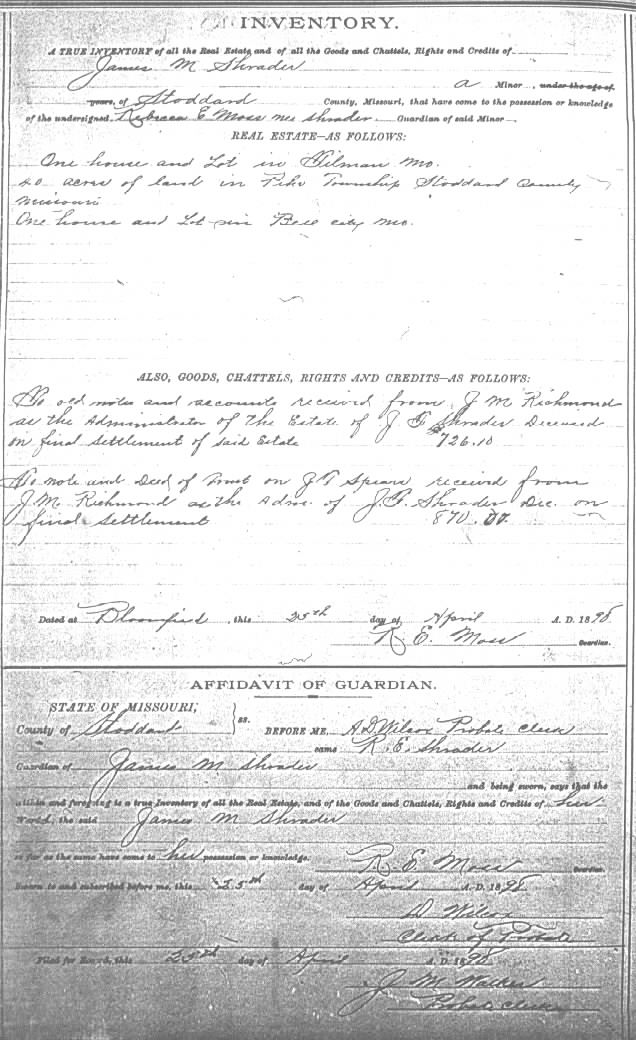 INVENTORY.
A TRUE INVENTORY of all the Real Estate, and of all the Goods and Chattels, Rights and Credits of
James M Shrader
a Minor, under the age of
years, of Stoddard County, Missouri, that have come to the possession or knowledge
of the undersigned, Rebecca E Moss nee Shrader Guardian of said Minor
REAL ESTATE—AS FOLLOWS:
One house and Lot in Tilman Mo.
40 acres of land in Pike Township Stoddard County
Missouri
One house and Lot in Bell city Mo.
ALSO, GOODS, CHATTELS, RIGHTS AND CREDITS—AS FOLLOWS:
To old notes and accounts received from J M Richmond
as the Administrator of the Estate of J F Shrader Deceased
on final settlement of said Estate $726.10
To note and Deed of Trust on J T Spears received from
J. M. Richmond as the Adm. of J. F. Shrader Dec. on
final settlement 870.00.
Dated at Bloomfield, this 25th day of April A. D. 1898
R E. Moss Guardian.
AFFIDAVIT OF GUARDIAN.
STATE OF MISSOURI,
County of Stoddard ss. BEFORE ME, A. D. Wilcox Probate Clerk
came R. E. Shrader
Guardian of James M. Shrader
and being sworn, says that the
within and foregoing is a true Inventory of all the Real Estate, and of the Goods and Chattels, Rights and Credits of her
Ward, the said James M Shrader
so far as the same have come to her possession or knowledge.
R. E Moss Guardian
Sworn to and subscribed before me, this 25th day of April A. D. 1898
D Wilcox
Clerk of Probate
Filed for Record, this 25th day of April A. D. 1898
J M Walker
Probate Clerk